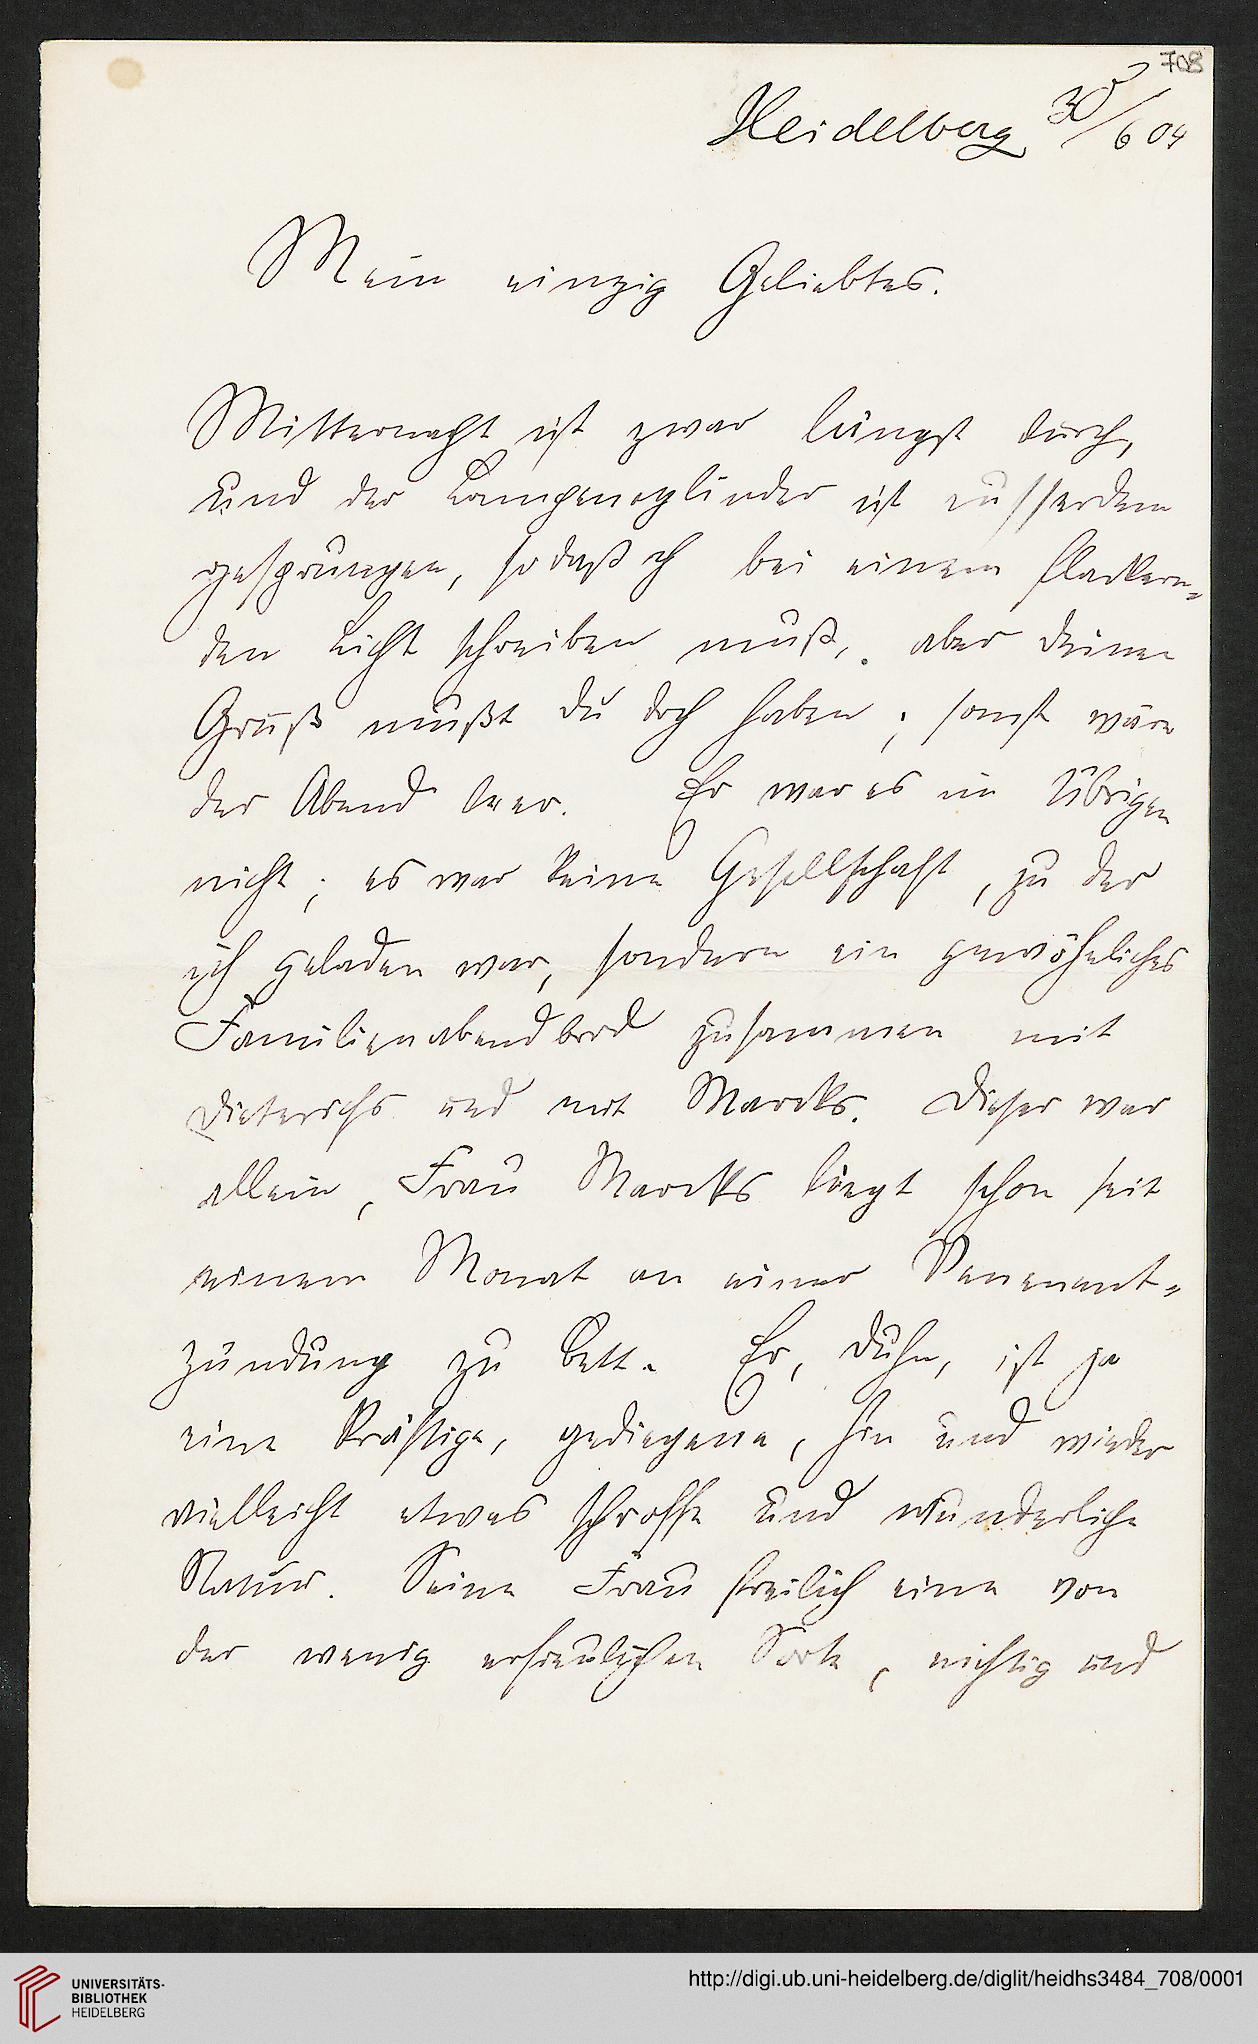 708
Heidelberg 30/6 04
Mein einzig Geliebtes.
Mitternacht ist zwar längst durch,
und der Lampencylinder ist ausserdem
gesprungen, sodaß ich bei einem flackern-
den Licht schreiben muß, aber Deinen
Gruß mußt Du doch haben; sonst wäre
der Abend leer. Er war es im Übrigen
nicht; es war keine Gesellschaft, zu der
ich geladen war, sondern ein gewöhnliches
Familienabendbrod zusammen mit
Dieterichs und mit Marcks. Dieser war
allein, Frau Marcks liegt schon seit
einem Monat an einer Venenent-
zündung zu Bett. Er, Duhn, ist ja
eine kräftige, gediegene, hin und wieder
vielleicht etwas schroffe und wunderliche
Natur. Seine Frau freilich eine von
der wenig erfreulichen Sorte, nichtig und
UNIVERSITÄTS-
BIBLIOTHEK
HEIDELBERG
http://digi.ub.uni-heidelberg.de/diglit/heidhs3484_708/0001